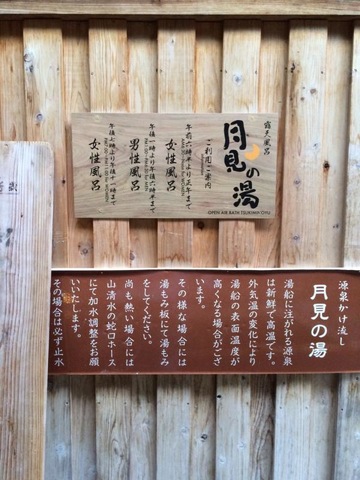 露天風呂
月見の湯
OPEN AIR BATH TSUKIMI OYU
ご利用ご案内
午前六時半より正午まで
女性風呂
午後一時より午後六時半まで
男性風呂
午後七時より午後十一時まで
女性風呂
源泉かけ流し
月見の湯
湯船に注がれる源泉
は新鮮で高温です。
外気温の変化により
湯船の表面温度が
高くなる場合がござ
います。
その様な場合には
湯もみ板にて湯もみ
をしてください。
尚も熱い場合には
山清水の蛇口ホース
にて加水調整をお願
いいたします。
その場合は必ず止水